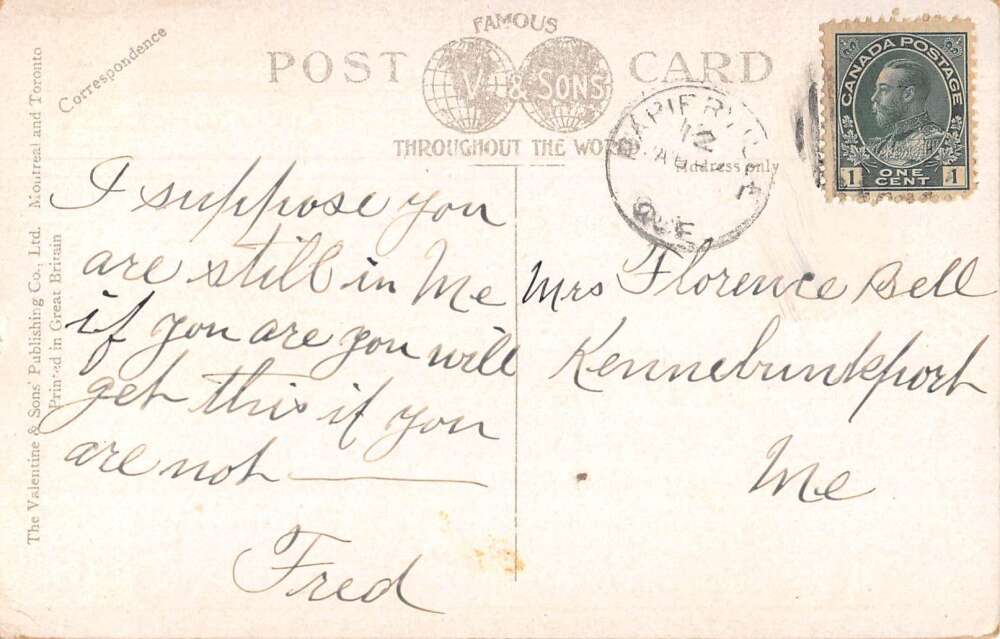 FAMOUS
POST CARD
V & SONS
THROUGHOUT THE
Correspondence
Address only
The Valentine & Sons' Publishing Co., Ltd. Montreal and Toronto
Printed in Great Britain
CANADA POSTAGE
1 ONE CENT 1
12
QUE
I suppose you
are still in Me
if you are you will
get this if you
are not
Fred
Mrs Florence Bell
Kennebunkport
Me